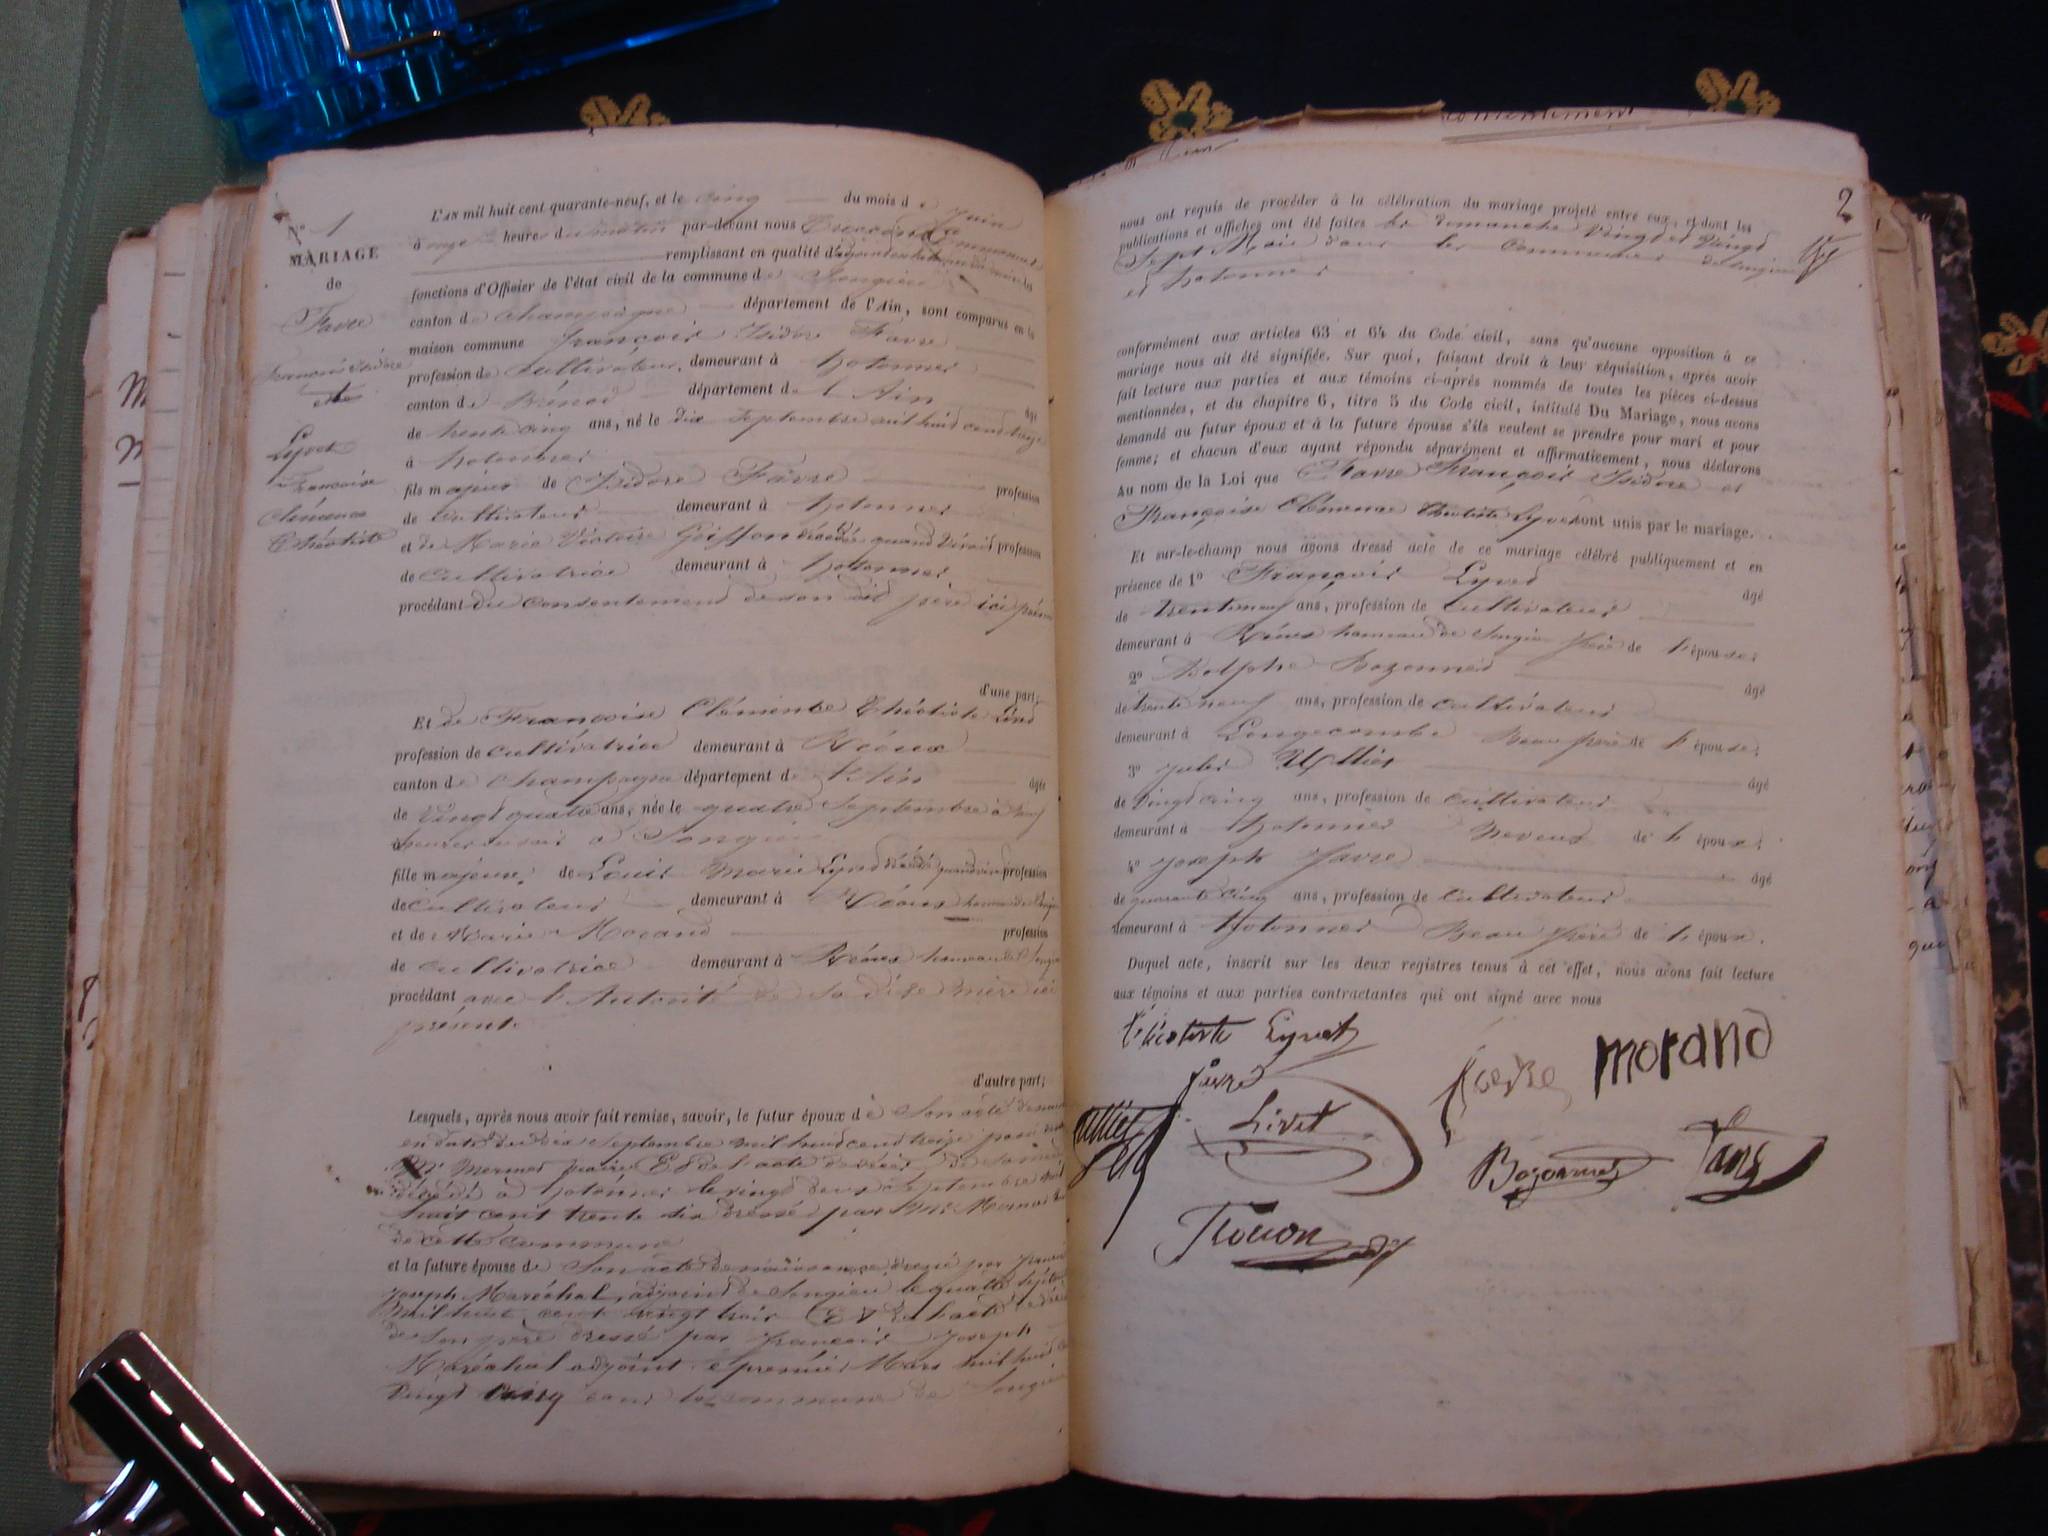 N° 1
MARIAGE
de
Favre
François Isidore
et
Lyvet
Françoise
Clémence
Théotiste
L'AN mil huit cent quarante-neuf, et le cinq du mois de Juin
à onze heure du matin par-devant nous
remplissant en qualité d'adjoint les
fonctions d'Officier de l'état civil de la commune de Songieu
canton de Champagne département de l'Ain, sont comparus en la
maison commune François Isidore Favre
profession de Cultivateur, demeurant à hotonnes
canton de Brénod département de l'Ain âgé
de trente cinq ans, né le dix Septembre mil huit cent treize
à hotonnes
fils majeur de Isidore Favre profession
de Cultivateur demeurant à hotonnes
et de Marie Victoire Goiffon décédée quand vivait profession
de Cultivatrice demeurant à hotonnes
procédant du consentement de son dit père ici présent
d'une part;
Et de Françoise Clémence Théotiste
profession de cultivatrice demeurant à
canton de Champagne département de l'Ain âgée
de vingt quatre ans, née le quatre Septembre à
heures du soir à Songieu
fille majeure, de Louis Marie Lyvet décédé quand vivait profession
de Cultivateur demeurant à
et de Marie Morand profession
de cultivatrice demeurant à hameau de Songieu
procédant avec l'Autorité de sa dite mère ici
présente
d'autre part;
Lesquels, après nous avoir fait remise, savoir, le futur époux de Son acte de
en date du dix Septembre mil huit cent treize
Mermet maire Et de l'acte de décès de sa mère
décédé à hotonnes le vingt deux Septembre mil
huit cent trente six dressé par Mr
de cette commune
et la future épouse de Son acte de naissance dressé par
Joseph Maréchal adjoint de Songieu le quatre
Mil huit cent vingt trois Et de l'acte de
de son père dressé par François Joseph
Maréchal adjoint le premier Mars mil huit
vingt cinq dans la commune de Songieu
2
nous ont requis de procéder à la célébration du mariage projeté entre eux, et dont les
publications et affiches ont été faites les dimanche vingt et vingt
Sept Mai dans les Communes de Songieu
et hotonnes
conformément aux articles 63 et 64 du Code civil, sans qu'aucune opposition à ce
mariage nous ait été signifiée. Sur quoi, faisant droit à leur réquisition, après avoir
fait lecture aux parties et aux témoins ci-après nommés de toutes les pièces ci-dessus
mentionnées, et du chapitre 6, titre 5 du Code civil, intitulé Du Mariage, nous avons
demandé au futur époux et à la future épouse s'ils veulent se prendre pour mari et pour
femme; et chacun d'eux ayant répondu séparément et affirmativement, nous déclarons
Au nom de la Loi que Favre François Isidore et
Françoise Clémence Théotiste Lyvet sont unis par le mariage.
Et sur-le-champ nous avons dressé acte de ce mariage célébré publiquement et en
présence de 1° François Lyvet âgé
de ans, profession de Cultivateur
demeurant à hameau de Songieu frère de l'épouse;
2° Adolphe Bozonnet âgé
de trente neuf ans, profession de cultivateur
demeurant à Longecombe Beau frère de l'épouse;
3° Jules Ulliet âgé
de vingt cinq ans, profession de cultivateur
demeurant à hotonnes Neveux de l'époux;
4° Joseph Favre âgé
de quarante cinq ans, profession de Cultivateur
demeurant à hotonnes Beau frère de l'époux.
Duquel acte, inscrit sur les deux registres tenus à cet effet, nous avons fait lecture
aux témoins et aux parties contractantes qui ont signé avec nous
Théotiste Lyvet
favre morand
Livet
Bozonnet